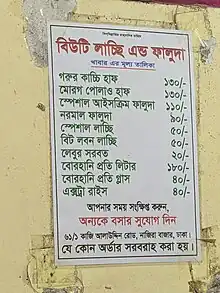 বিসমিল্লাহির রাহমানির রাহিম
বিউটি লাচ্ছি এন্ড ফালুদা
খাবার এর মূল্য তালিকা
গরুর কাচ্চি হাফ ১৩০/-
মোরগ পোলাও হাফ ১৩০/-
স্পেশাল আইসক্রিম ফালুদা ১১০/-
নরমাল ফালুদা ৯০/-
স্পেশাল লাচ্ছি ৫০/-
বিট লবন লাচ্ছি ৫০/-
লেবুর সরবত ২০/-
বোরহানি প্রতি লিটার ১৮০/-
বোরহানি প্রতি গ্লাস ৪০/-
এক্সট্রা রাইস ৪০/-
আপনার সময় সংক্ষিপ্ত করুন,
অন্যকে বসার সুযোগ দিন
৬১/১ কাজি আলাউদ্দিন রোড, নাজিরা বাজার, ঢাকা।
যে কোন অর্ডার সরবরাহ করা হয়।